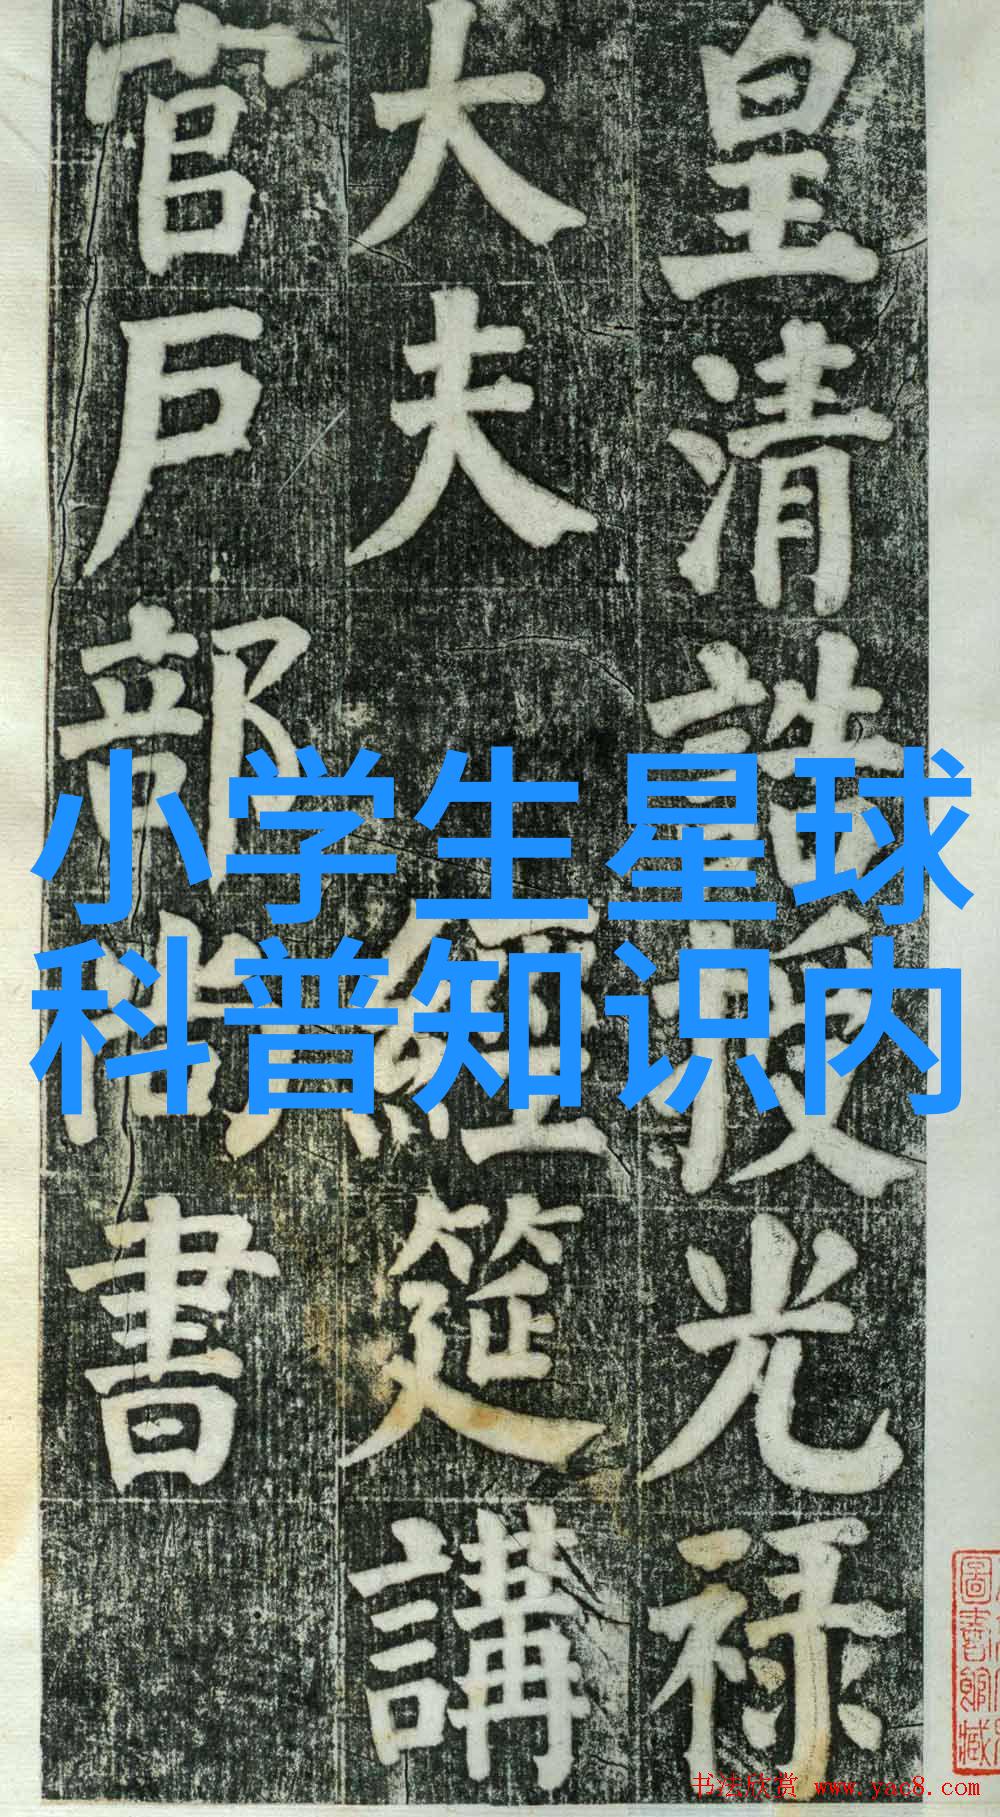 皇清誥授光禄
大夫經筵講
官戸部書
小学生星球
科普知识内
圖書館藏
书法欣赏 www.yac8.com